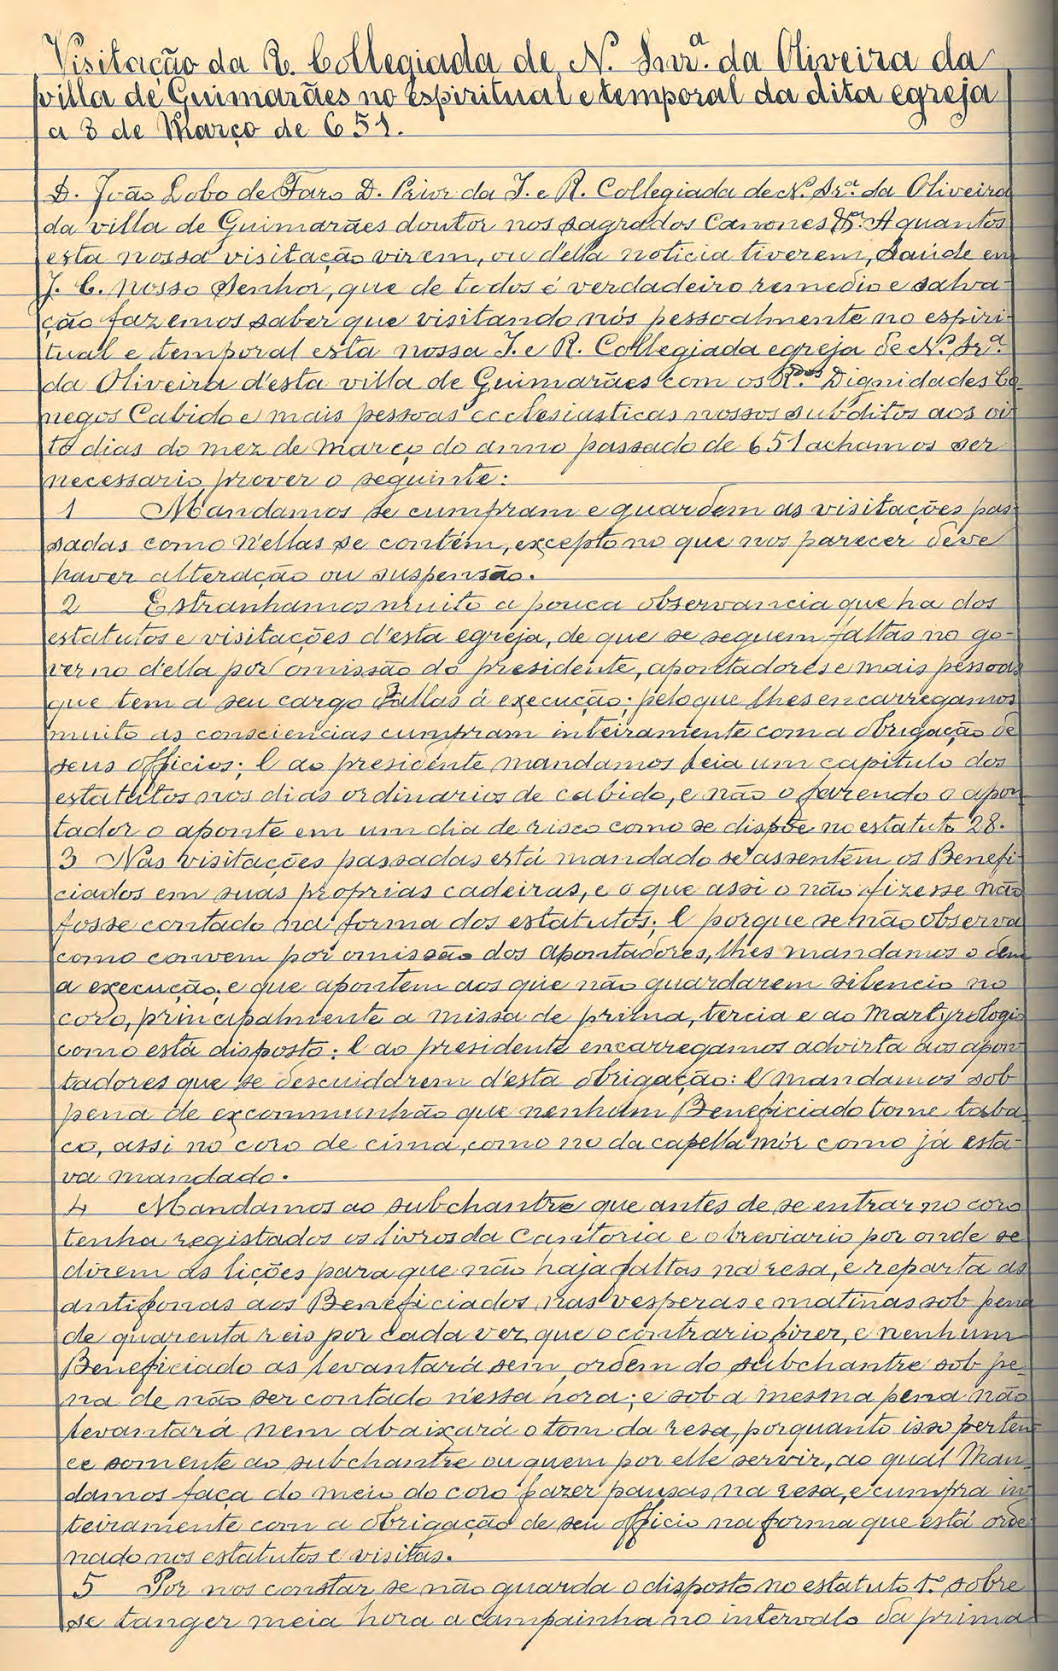 Visitação da R. Collegiada de N. Snr.ª da Oliveira da
villa de Guimarães no espiritual e temporal da dita egreja
a 8 de Março de 651.
D. João Lobo de Faro D. Prior da I. e R. Collegiada de N. Sr.ª da Oliveira
da villa de Guimarães doutor nos sagrados Canones &ª. A quantos
esta nossa visitação virem, ou d'ella noticia tiverem, saúde em
J. C. nosso Senhor, que de todos é verdadeiro remedio e salva-
ção fazemos saber que visitando nós pessoalmente no espiri-
tual e temporal esta nossa I. e R. Collegiada egreja de N. Sr.ª
da Oliveira d'esta villa de Guimarães com os R.dos Dignidades Co-
negos Cabido e mais pessoas ecclesiasticas nossos subditos aos oi-
to dias do mez de Março do anno passado de 651 achamos ser
necessario prover o seguinte:
1 Mandamos se cumpram e guardem as visitações pas-
sadas como n'ellas se contém, excepto no que nos parecer deve
haver alteração ou suspensão.
2 Estranhamos muito a pouca observancia que ha dos
estatutos e visitações d'esta egreja, de que se seguem faltas no go-
verno d'ella por omissão do presidente, apontadores e mais pessoas
que tem a seu cargo dal-las á execução; pelo que lhes encarregamos
muito as consciencias cumpram inteiramente com a obrigação de
seus officios; E ao presidente mandamos leia um capitulo dos
estatutos nos dias ordinarios de cabido, e não o fazendo o apon-
tador o aponte em um dia de risco como se dispõe no estatuto 28.
3 Nas visitações passadas está mandado se assentem os Benefi-
ciados em suas proprias cadeiras, e o que assi o não fizesse não
fosse contado na forma dos estatutos; E porque se não observa
como convem por omissão dos apontadores, lhes mandamos o dem
a execução, e que apontem aos que não guardarem silencio no
coro, principalmente a missa de prima, tercia e ao Martyrologio
como está disposto: E ao presidente encarregamos advirta aos apon-
tadores que se descuidarem d'esta obrigação: E mandamos sob
pena de excommunhão que nenhum Beneficiado tome taba-
co, assi no coro de cima, como no da capella mór como já esta-
va mandado.
4 Mandamos ao subchantre que antes de se entrar no coro
tenha registados os livros da Cantoria e o breviario por onde se
direm as lições para que não haja faltas na resa, e reparta as
antifonas aos Beneficiados nas vesperas e matinas sob pena
de quarenta reis por cada vez que o contrario fizer, e nenhum
Beneficiado as levantará sem ordem do subchantre sob pe-
na de não ser contado n'essa hora; e sob a mesma pena não
levantará nem abaixará o tom da resa, porquanto isso perten-
ce somente ao subchantre ou quem por elle servir, ao qual Man-
damos faça do meio do coro fazer pausas na resa, e cumpra in-
teiramente com a obrigação de seu officio na forma que está orde-
nado nos estatutos e visitas.
5 Por nos constar se não guarda o disposto no estatuto 1.º sobre
se tanger meia hora a campainha no intervalo da prima